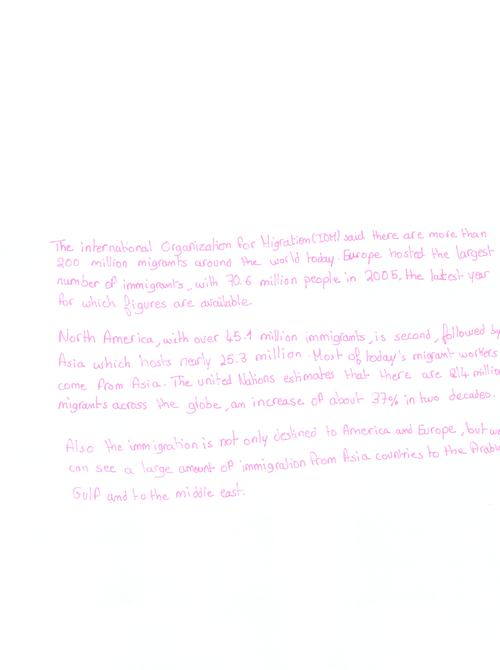 The international Organization for Migration (IOM) said there are more than
200 million migrants around the world today. Europe hosted the largest
number of immigrants, with 70.6 million people in 2005, the latest year
for which figures are available.
North America, with over 45.1 million immigrants, is second, followed by
Asia which hosts nearly 25.3 million. Most of today's migrant workers
come from Asia. The united Nations estimates that there are 214 million
migrants across the globe, an increase of about 37% in two decades.
Also the immigration is not only destined to America and Europe, but we
can see a large amount of immigration from Asia countries to the
Gulf and to the middle east.